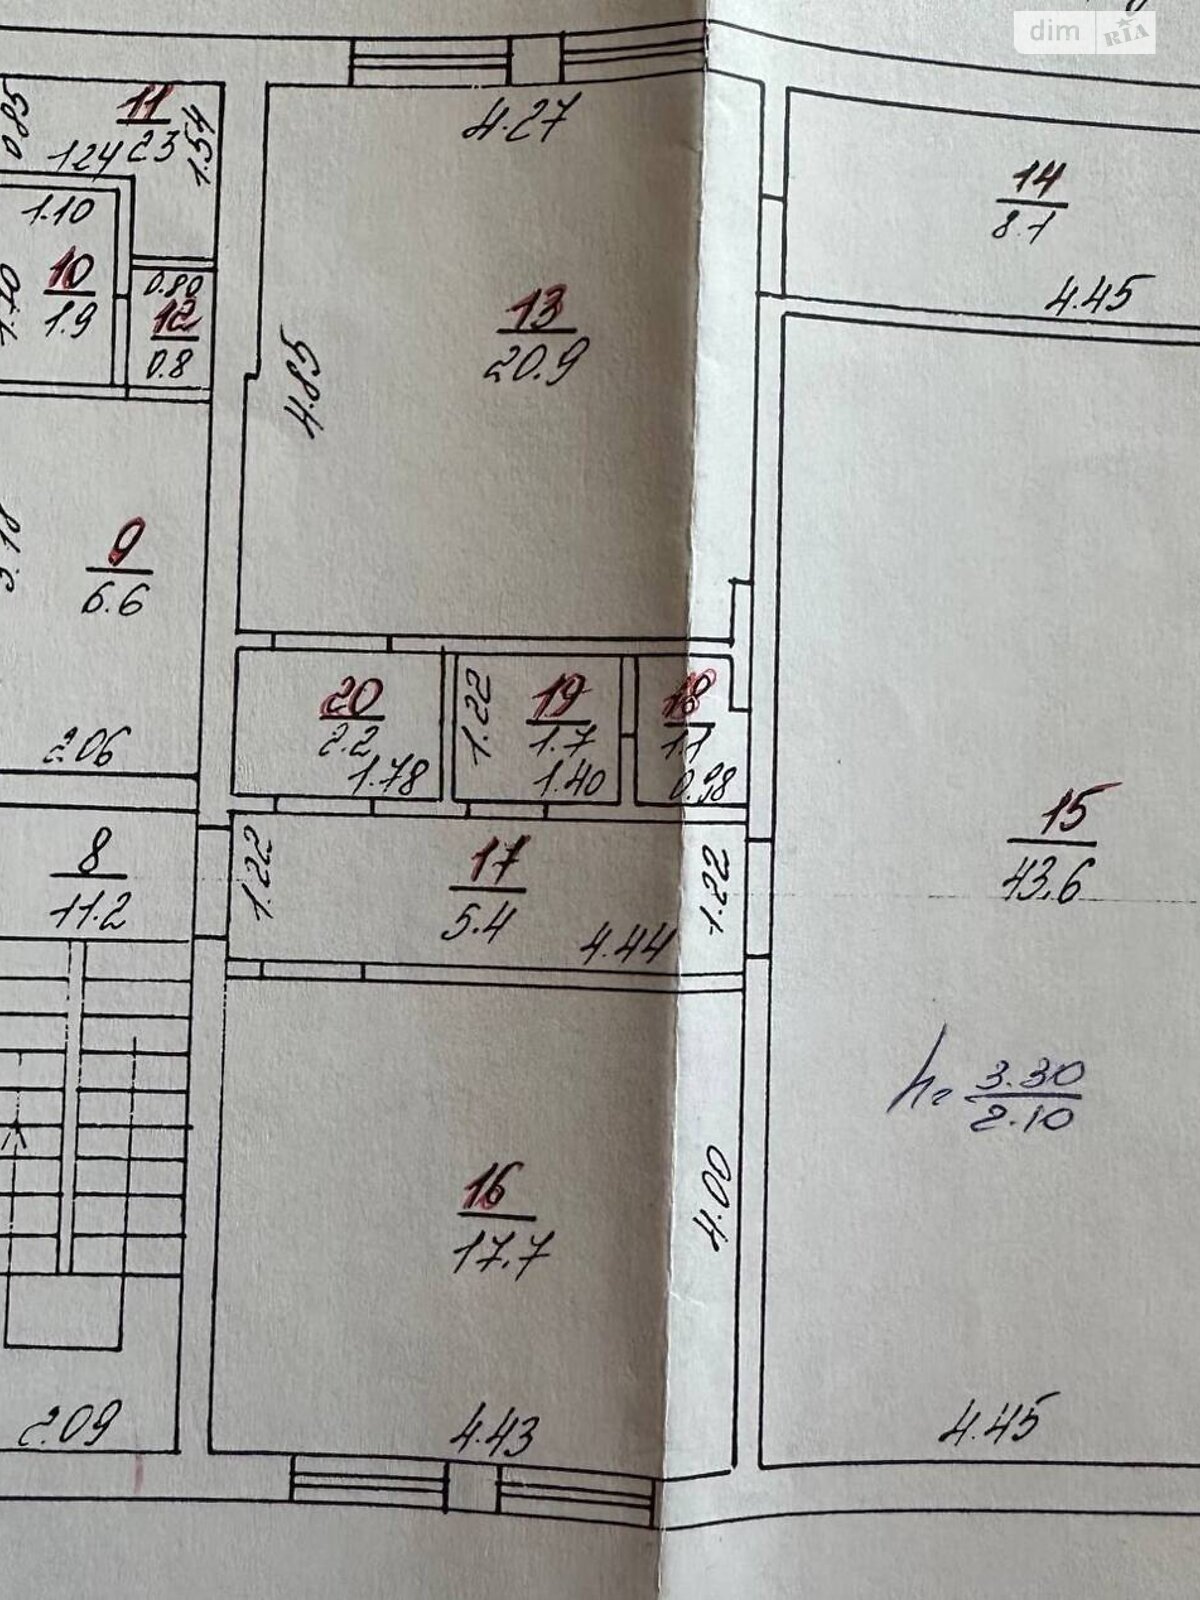 dim RIA
0.85
11
2.3
1.54
1.24
1.10
10
1.9
1.70
0.80
12
0.8
4.27
13
20.9
4.85
14
8.1
4.45
9
6.6
2.06
20
2.2
1.78
1.22
19
1.7
1.40
18
1.1
0.98
8
11.2
1.22
17
5.4
4.44
1.22
15
43.6
h= 3.30
2.10
16
17.7
4.00
2.09
4.43
4.45